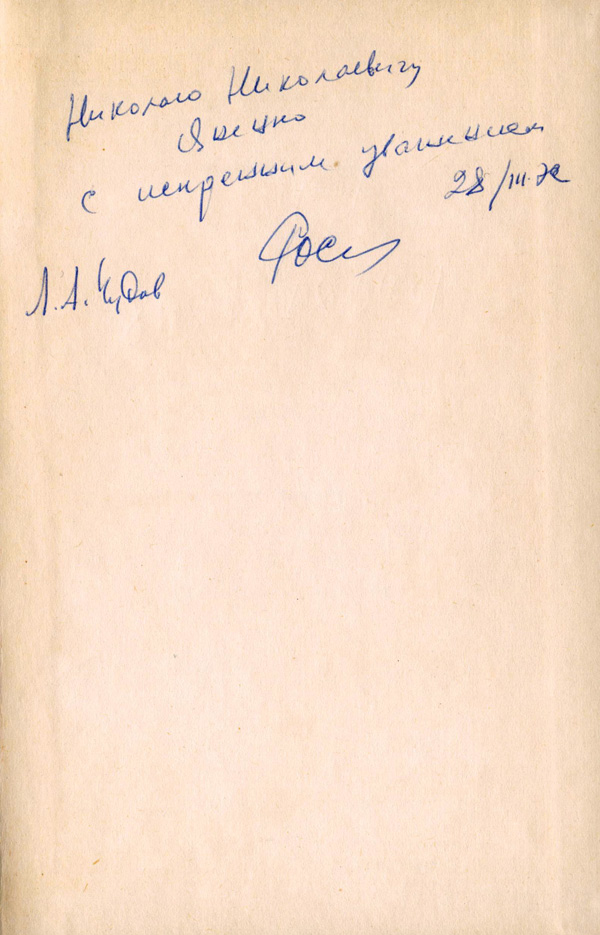 Николаю Николаевичу
Яненко
с искренним уважением
28/III-72
Л.А. Чудов